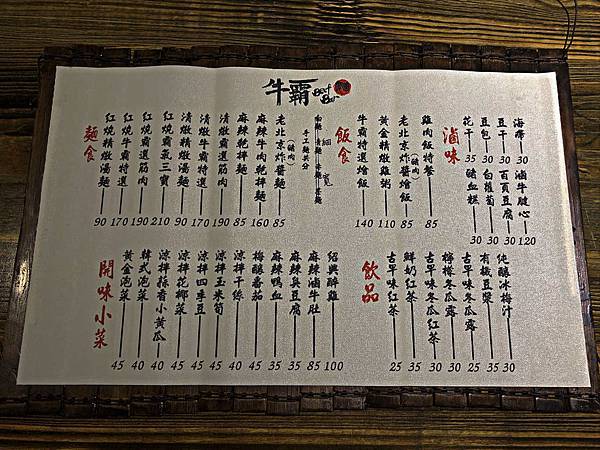 牛霸 Beef Bar
麵食
紅燒精燉湯麵 90
紅燒牛霸特選 170
紅燒霸選筋肉 190
紅燒霸氣三寶 210
清燉精燉湯麵 90
清燉牛霸特選 170
清燉霸選筋肉 190
麻辣乾拌麵 85
麻辣牛肉乾拌麵 160
老北京炸醬麵(豬肉) 85
手工麵共分
細 寬
飯食
牛霸特選燴飯 140
黃金精燉雞粥 110
老北京炸醬燴飯(豬肉) 85
雞肉飯特餐 85
滷味
花干 35
豆包 30
豆干 30
海帶 30
豬血糕 30
白蘿蔔 30
百頁豆腐 30
滷牛腱心 120
開味小菜
黃金泡菜 45
韓式泡菜 45
涼拌蒜香小黃瓜 40
涼拌花椰菜 40
涼拌四季豆 45
涼拌玉米筍 45
涼拌干絲 40
梅醋番茄 40
麻辣鴨血 45
麻辣臭豆腐 35
麻辣滷牛肚 85
紹興醉雞 100
飲品
古早味紅茶 25
鮮奶紅茶 35
古早味冬瓜紅茶 30
檸檬冬瓜露 30
古早味冬瓜露 25
有機豆漿 35
純釀冰梅汁 30